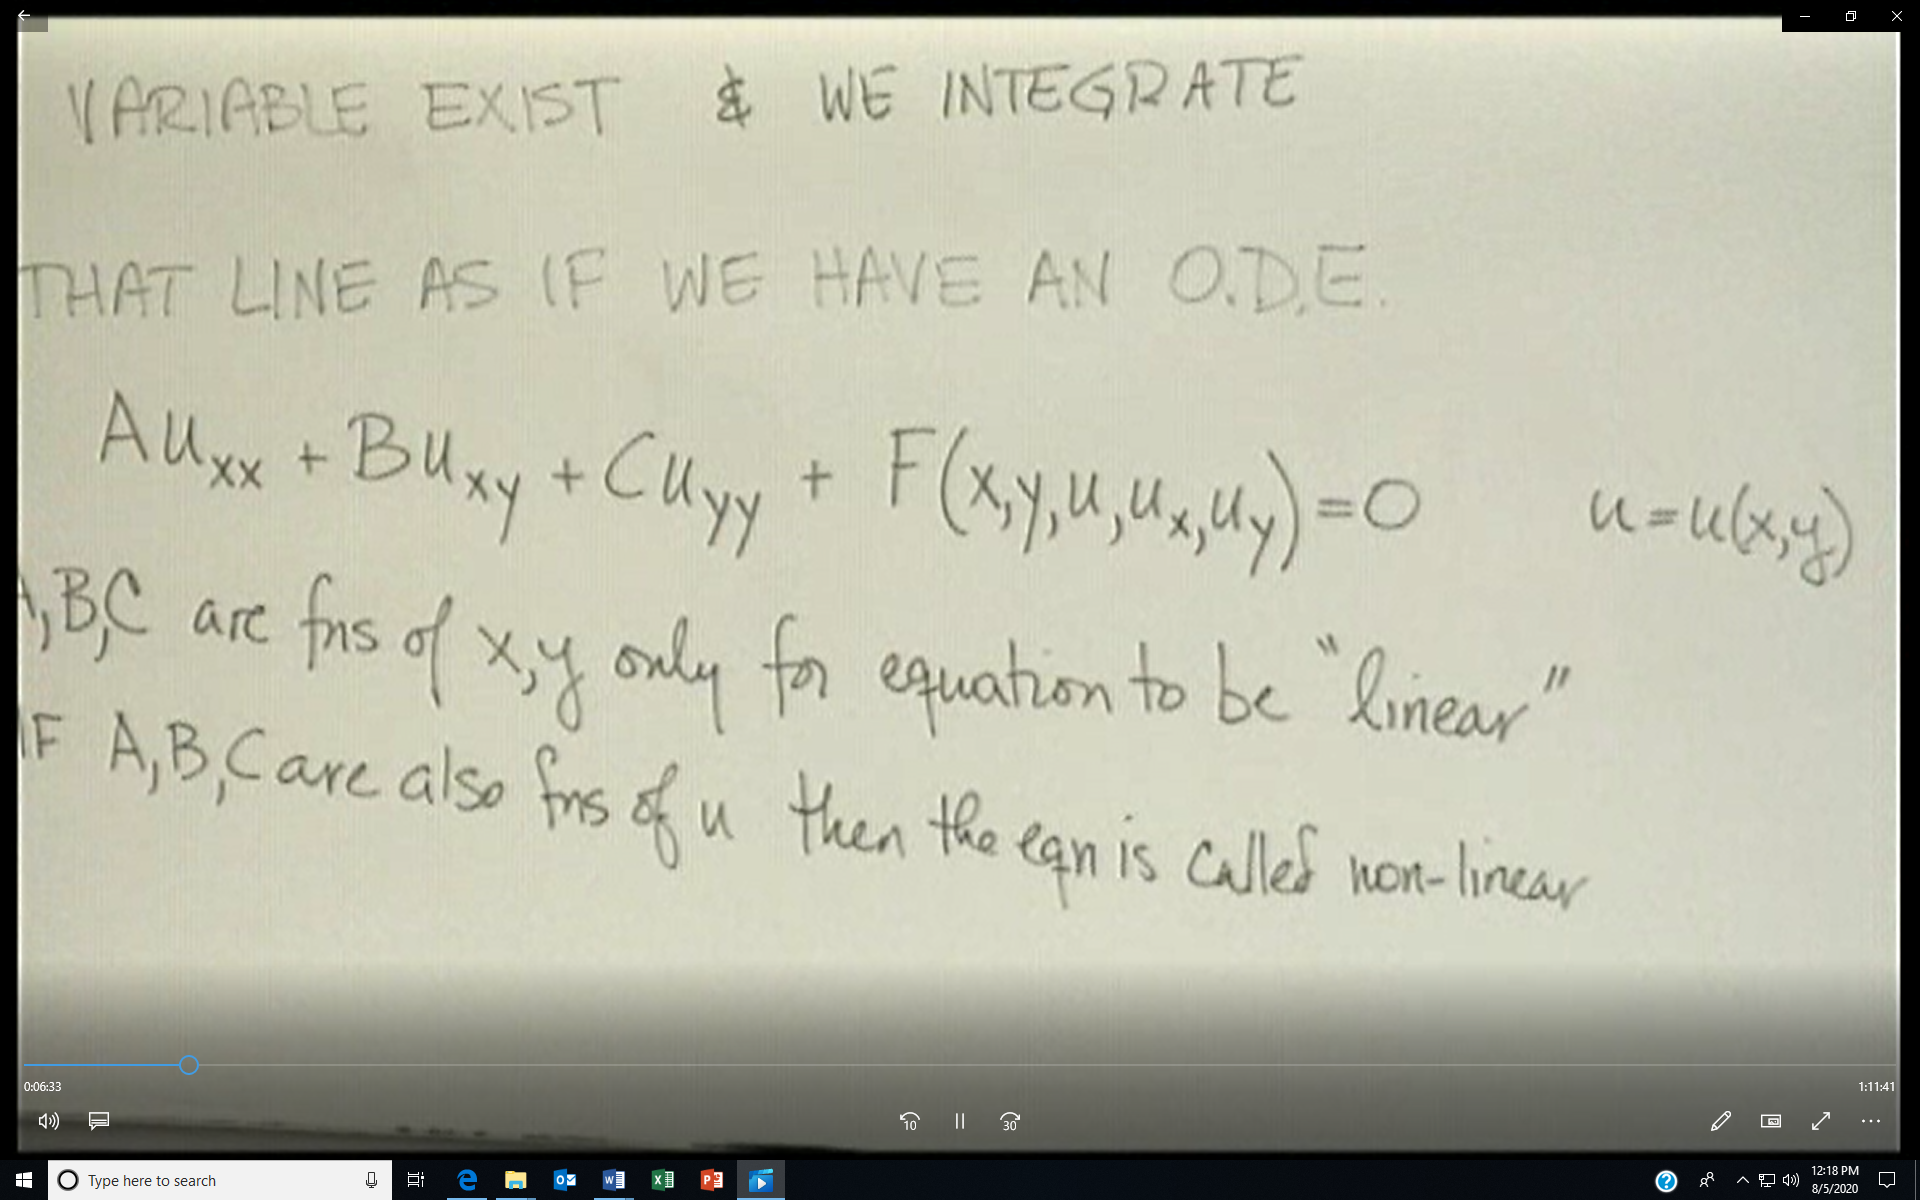 VARIABLE EXIST & WE INTEGRATE
THAT LINE AS IF WE HAVE AN O.D.E.
Au_xx + Bu_xy + Cu_yy + F(x,y,u,u_x,u_y)=0 u=u(x,y)
A,B,C are fns of x,y only for equation to be "linear"
IF A,B,C are also fns of u then the eqn is called non-linear
0:06:33
1:11:41
10
30
Type here to search
12:18 PM
8/5/2020